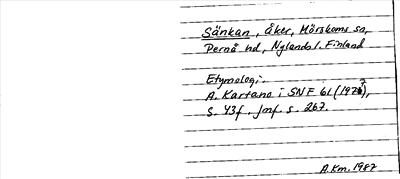 Sänkan, åker, Mörskoms sn,
Pernå hd, Nylands l. Finland
Etymologi.
A. Kartano i SNF 61 (1971),
s. 43f. Jmf. s. 267.
A.Km. 1987